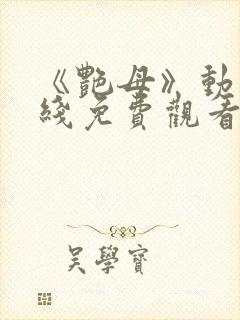 《艷母》動
綫免費觀看
吳學寶